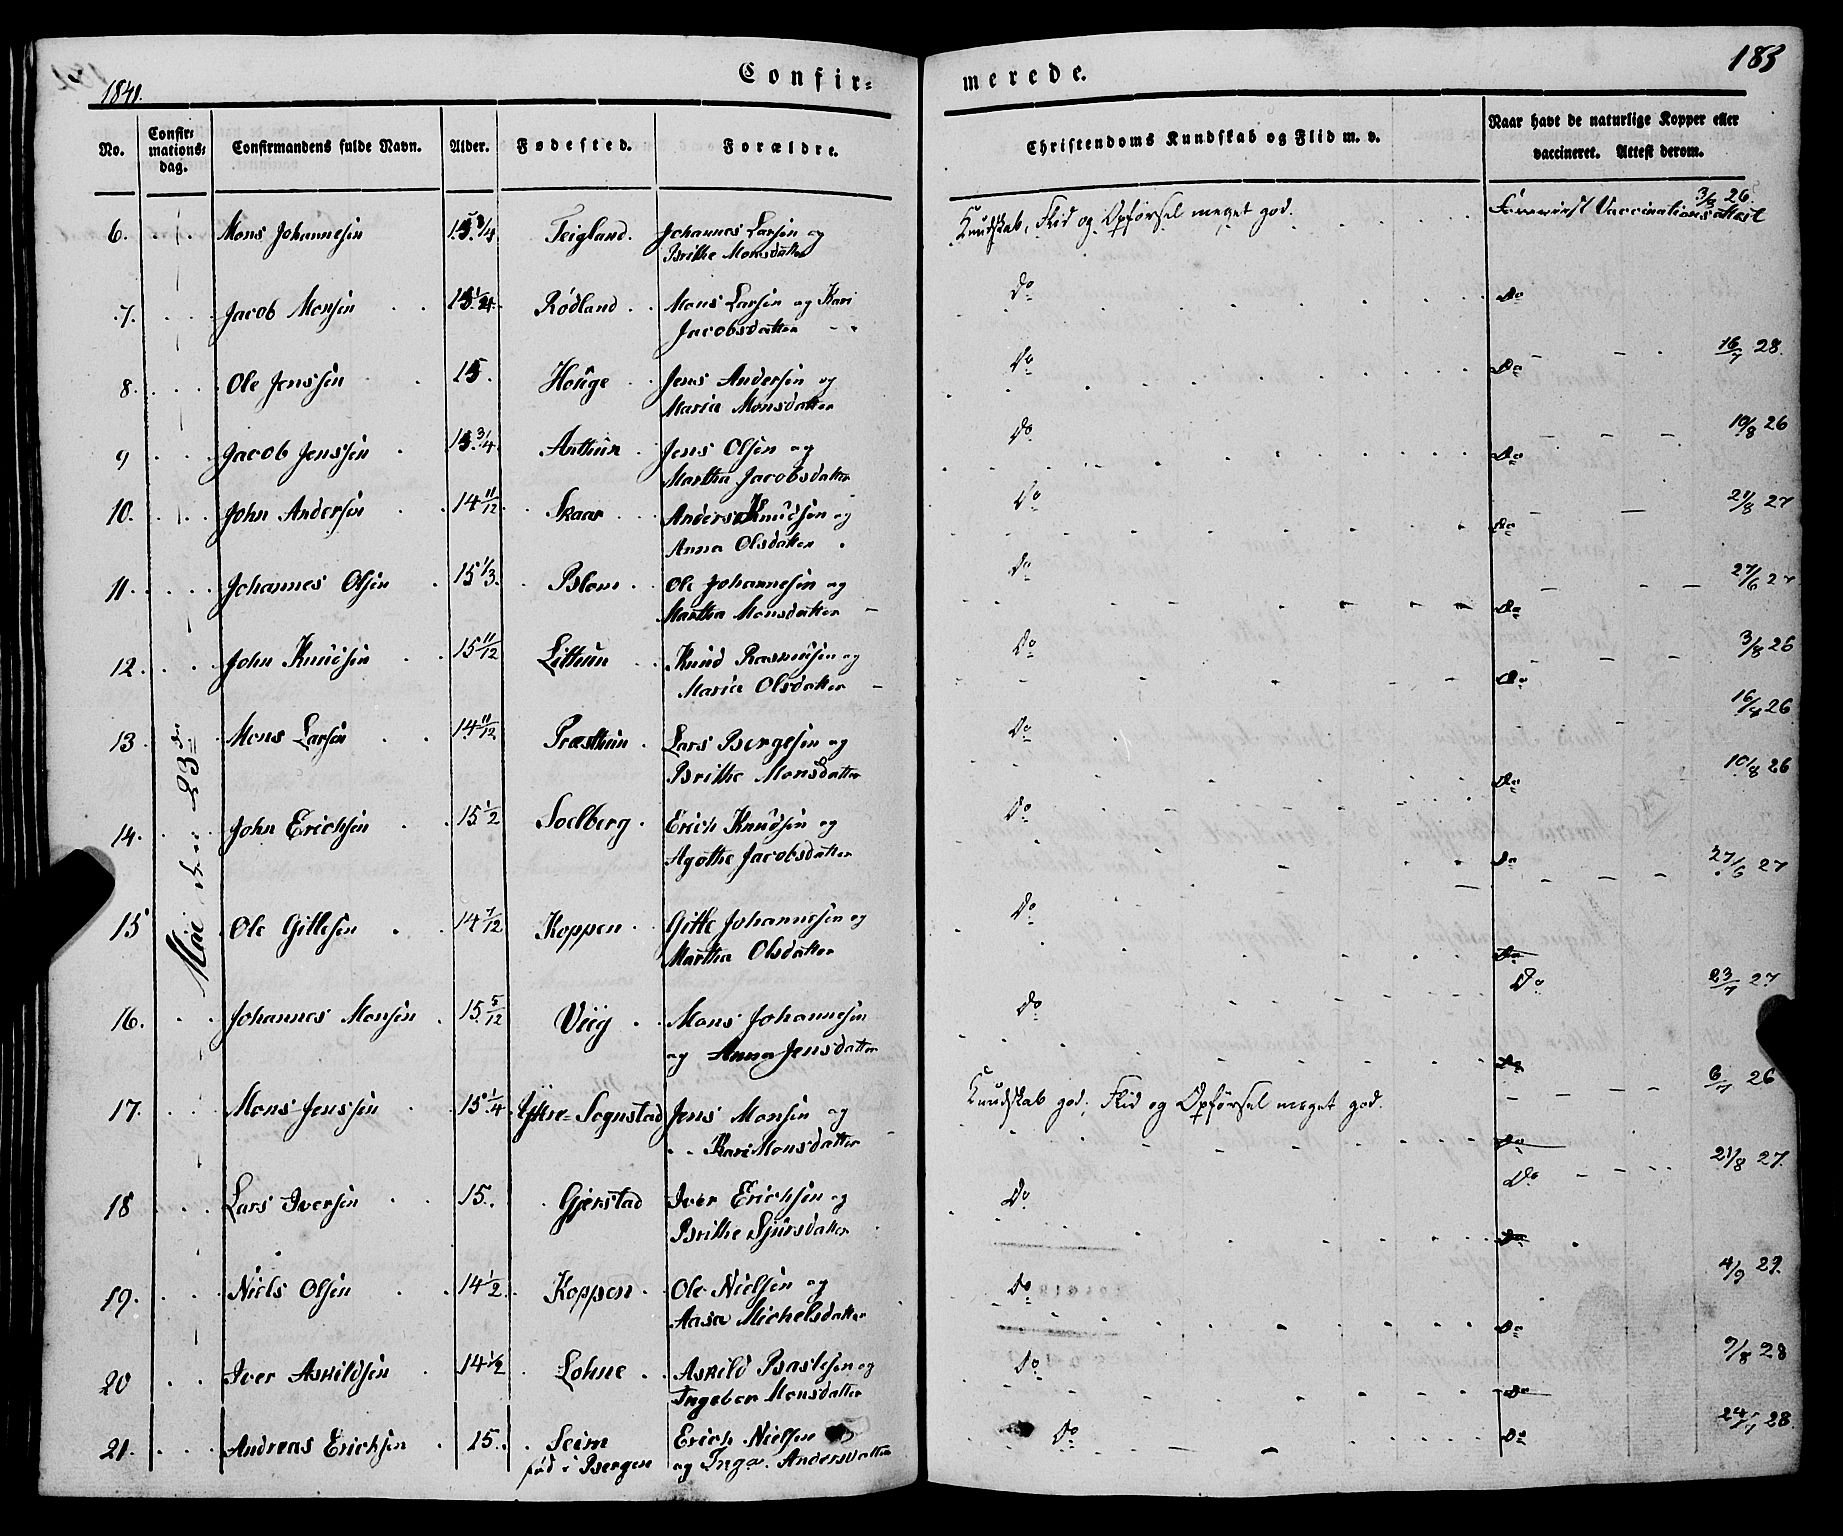 183
1841.
Confir=
merede.
No.
Confir=
mations=
dag.
Confirmandens fulde Navn.
Alder.
Fødested.
Forældre.
Christendoms Kundskab og Flid m. v.
Naar havt de naturlige Kopper eller
vaccineret. Attest derom.
Mai den 23de
6. Mons Johannesen 15 3/4 Teigland. Johannes Larsen og
Brithe Monsdatter
Kundskab, Flid og Opførsel meget god. Vaccinationsattest 3/8 26.
7. Jacob Monsen Rødland Mons Larsen og Kari
Jacobsdatter
Do Do
8. Ole Jenssen 15. Houge Jens Andersen og
Maria Monsdatter
Do Do 16/7 28.
9 Jacob Jenssen 15 3/4 Arthun Jens Olsen og
Martha Jacobsdatter
Do Do 10/8 26
10. John Andersen 14 11/12 Skaar Anders Knudsen og
Anna Olsdatter
Do Do 21/8 27
11. Johannes Olsen 15 1/3. Blom Ole Johannesen og
Martha Monsdatter
Do Do 27/6 27
12. John Knudsen 15 11/12 Litthun Knud Rasmusen og
Maria Olsdatter
Do Do 3/8 26
13. Mons Larsen 14 11/12 Præsthun Lars Bergesen og
Brithe Monsdatter
Do Do 16/8 26
14. John Erichsen 15 1/2 Soelberg Erich Knudsen og
Agathe Jacobsdatter
Do Do 10/8 26
15 Ole Gittlesen 14 7/12 Koppen Gitle Johannesen og
Martha Olsdatter
Do Do 27/6 27
Do 23/7 27
16. Johannes Monsen 15 5/12 Viig Mons Johannesen
og Anna Jensdatter
Do Do
17. Mons Jenssen 15 1/4 Yttre-Sognstad Jens Monsen og
Kari Monsdatter
Kundskab god, Flid og Opførsel meget god. Do 6/7 26
Do 21/8 27.
18 Lars Iversen 15. Gjerstad Iver Erichsen og
Brithe Sjursdatter
Do Do
19. Niels Olsen 14 1/2 Koppen Ole Nielsen og
Aasa Michelsdatter
Do Do 4/9 29.
20 Iver Askildsen 14 1/2 Lohne Askild Baslesen og
Ingebor Monsdatter
Do Do 9/8 28
21. Andreas Erichsen 15. Seim
fød i Bergen
Erich Nielsen
og Inga Andersdatter
Do Do 28.